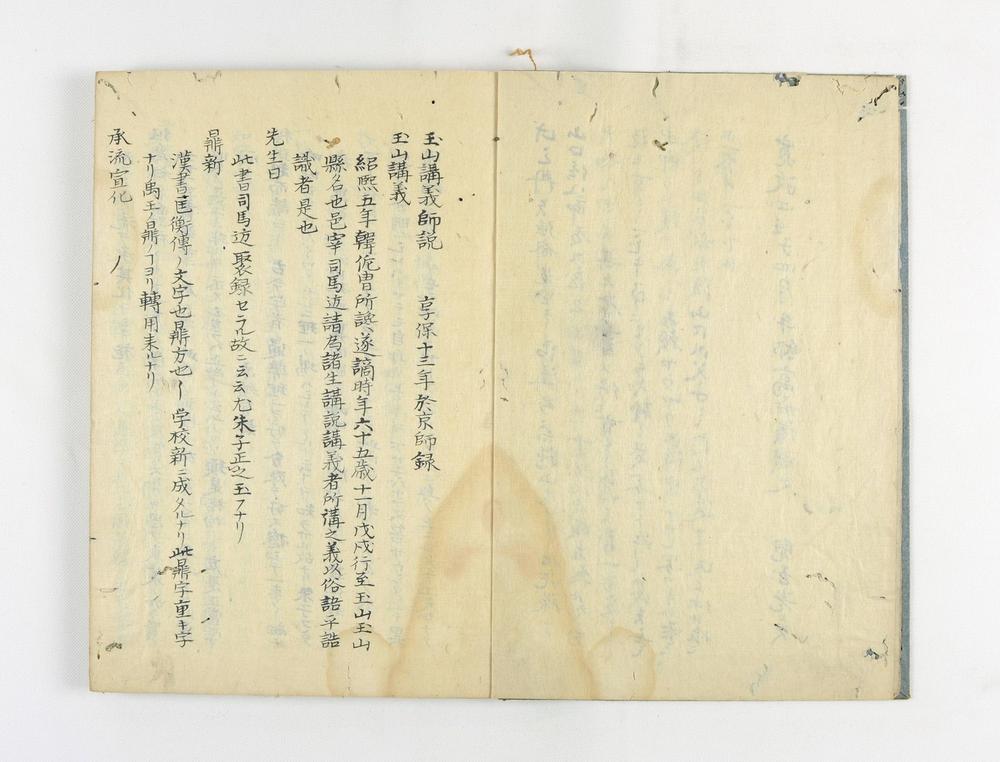 玉山講義師説　享保十三年於京師録
玉山講義
紹熙五年韓侂冑所讒遂謫時年六十五歳十一月戊戌行至玉山玉山
縣名也邑宰司馬迈請為諸生講説講義者所講之義以俗語平話
識者是也
先生曰
此書司馬迈裒録セラル故ニ云云尤朱子正之玉フナリ
鼎新
漢書匡衡傳ノ文字也鼎方也ー学校新ニ成メルナリ此鼎字重キ字
ナリ禹王ノ鼎ノヿヨリ轉用来ルナリ
承流宣化